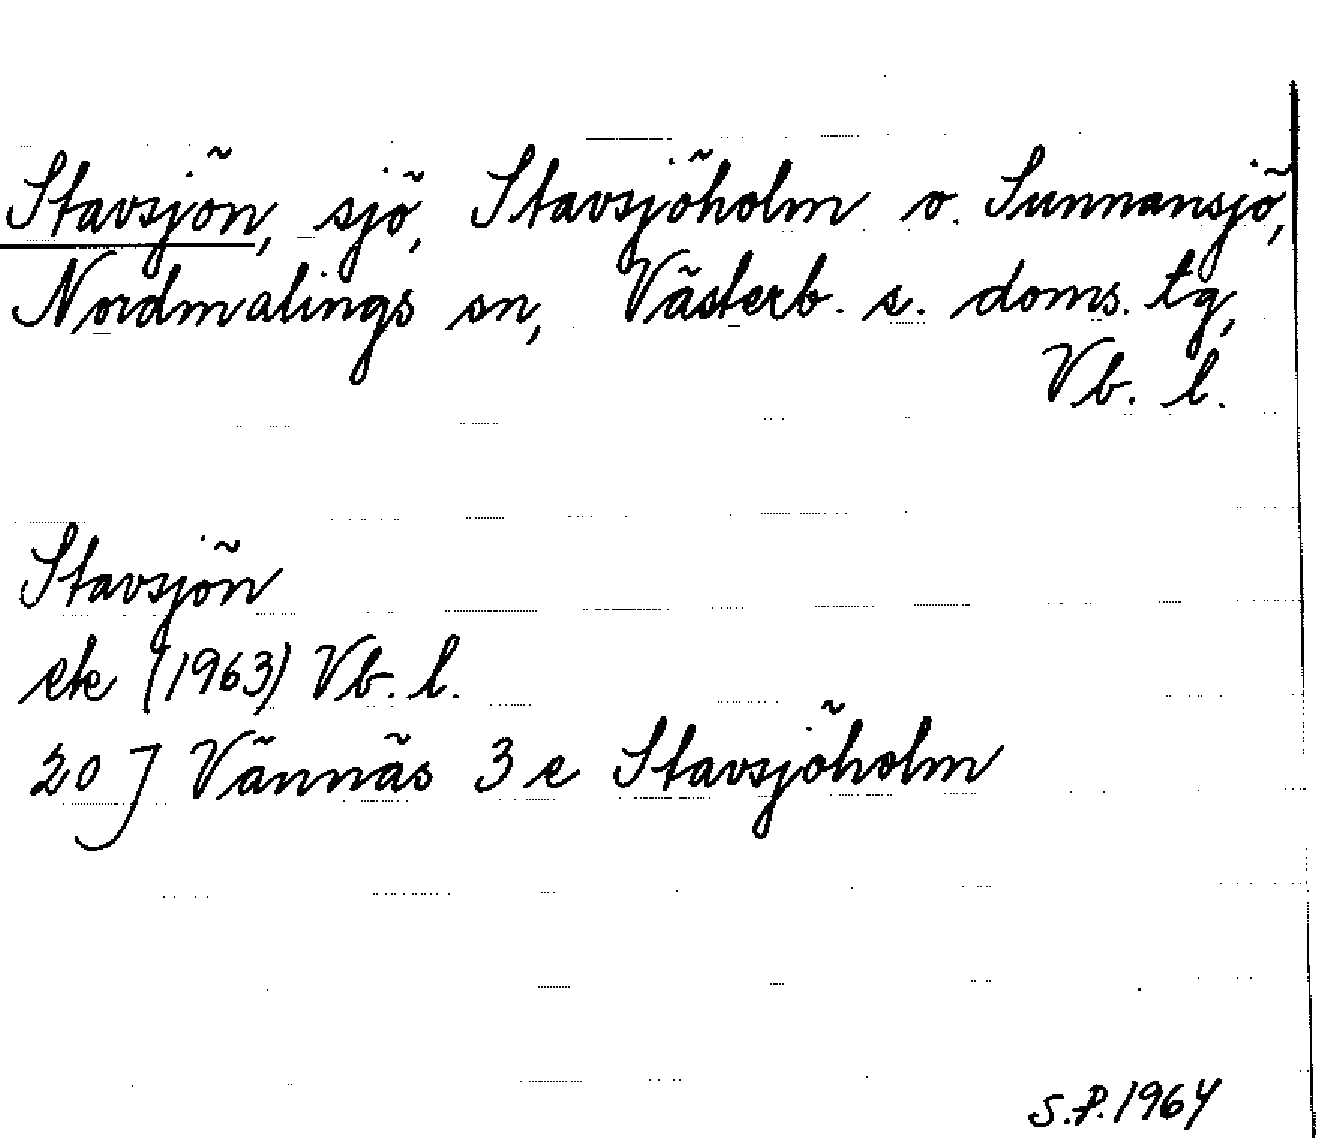 Stavsjön, sjö, Stavsjöholm o. Sunnansjö,
Nordmalings sn, Västerb. s. doms. tg,
Vb. l.
Stavsjön
ek (1963) Vb. l.
20 J Vännäs 3 e Stavsjöholm
S.P. 1964